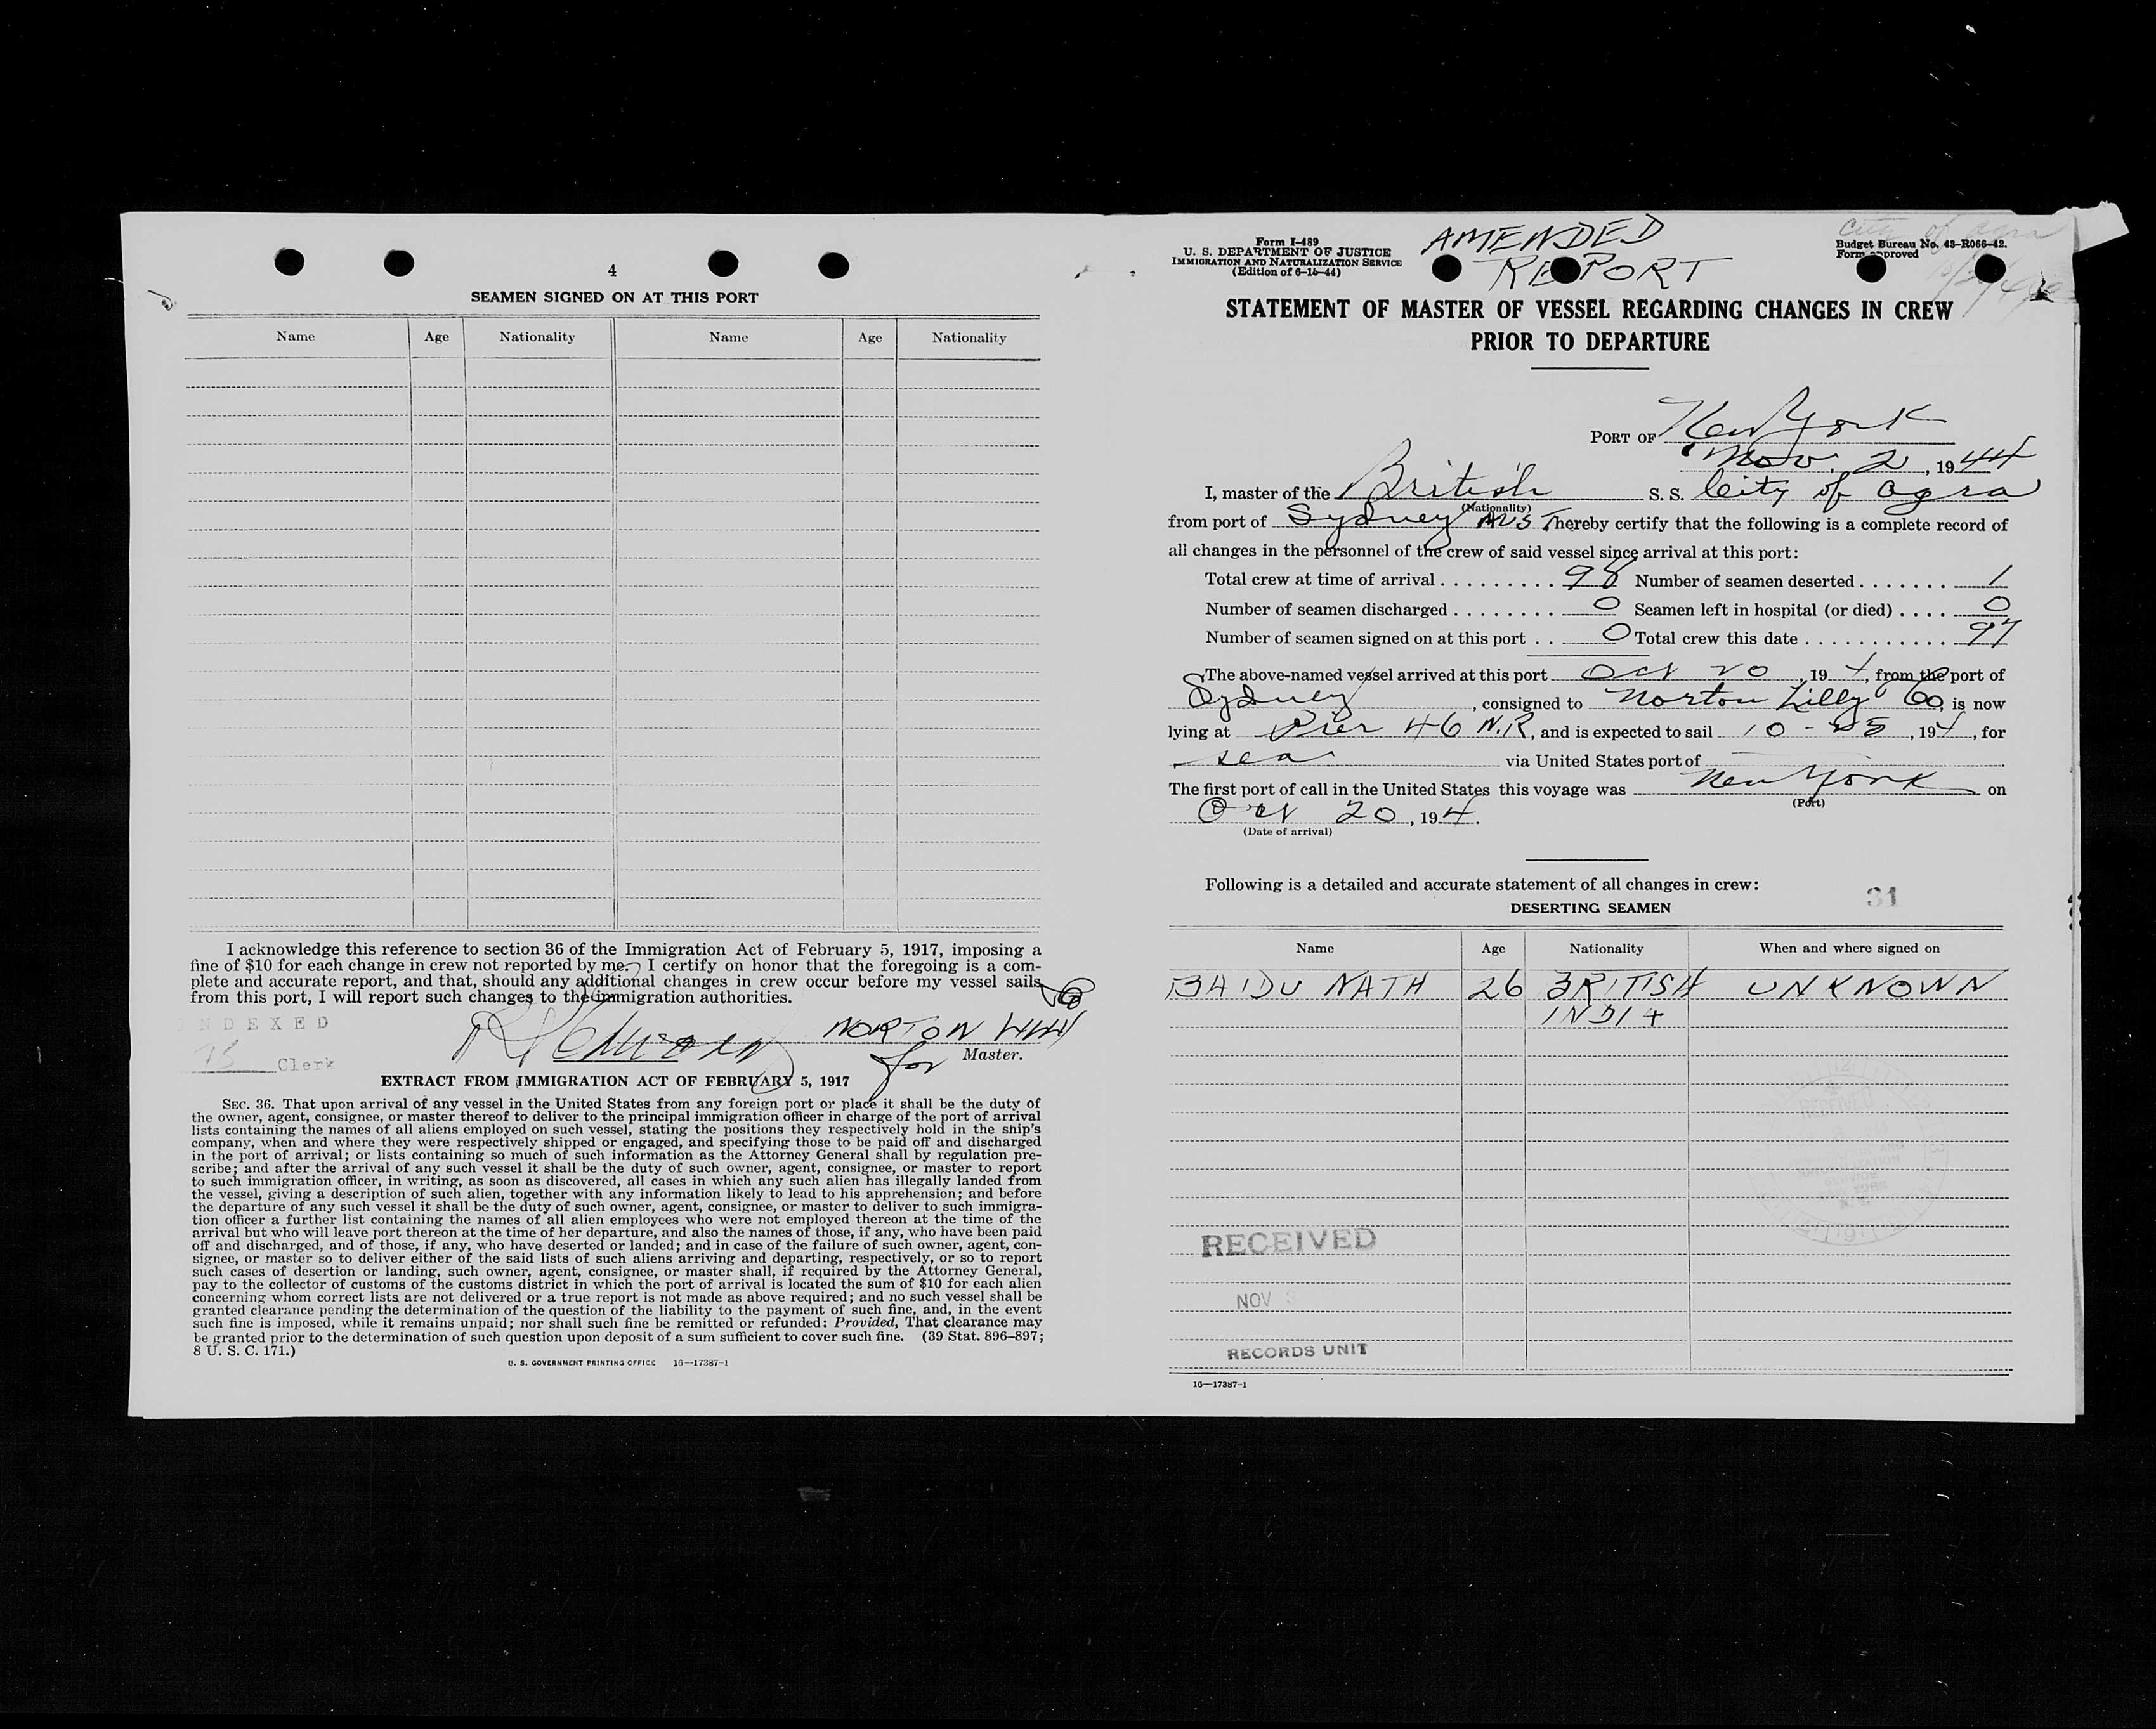 4
SEAMEN SIGNED ON AT THIS PORT
Name Age Nationality Name Age Nationality
I acknowledge this reference to section 36 of the Immigration Act of February 5, 1917, imposing a
fine of $10 for each change in crew not reported by me. I certify on honor that the foregoing is a com-
plete and accurate report, and that, should any additional changes in crew occur before my vessel sails
from this port, I will report such changes to the immigration authorities.
INDEXED
NORTON Lilly
Clerk
for Master.
EXTRACT FROM IMMIGRATION ACT OF FEBRUARY 5, 1917
SEC. 36. That upon arrival of any vessel in the United States from any foreign port or place it shall be the duty of
the owner, agent, consignee, or master thereof to deliver to the principal immigration officer in charge of the port of arrival
lists containing the names of all aliens employed on such vessel, stating the positions they respectively hold in the ship's
company, when and where they were respectively shipped or engaged, and specifying those to be paid off and discharged
in the port of arrival; or lists containing so much of such information as the Attorney General shall by regulation pre-
scribe; and after the arrival of any such vessel it shall be the duty of such owner, agent, consignee, or master to report
to such immigration officer, in writing, as soon as discovered, all cases in which any such alien has illegally landed from
the vessel, giving a description of such alien, together with any information likely to lead to his apprehension; and before
the departure of any such vessel it shall be the duty of such owner, agent, consignee, or master to deliver to such immigra-
tion officer a further list containing the names of all alien employees who were not employed thereon at the time of the
arrival but who will leave port thereon at the time of her departure, and also the names of those, if any, who have been paid
off and discharged, and of those, if any, who have deserted or landed; and in case of the failure of such owner, agent, con-
signee, or master so to deliver either of the said lists of such aliens arriving and departing, respectively, or so to report
such cases of desertion or landing, such owner, agent, consignee, or master shall, if required by the Attorney General,
pay to the collector of customs of the customs district in which the port of arrival is located the sum of $10 for each alien
concerning whom correct lists are not delivered or a true report is not made as above required; and no such vessel shall be
granted clearance pending the determination of the question of the liability to the payment of such fine, and, in the event
such fine is imposed, while it remains unpaid; nor shall such fine be remitted or refunded: Provided, That clearance may
be granted prior to the determination of such question upon deposit of a sum sufficient to cover such fine. (39 Stat. 896-897;
8 U. S. C. 171.)
U. S. GOVERNMENT PRINTING OFFICE 16—17387-1
Form I-489
U. S. DEPARTMENT OF JUSTICE
IMMIGRATION AND NATURALIZATION SERVICE
(Edition of 6-15-44)
AMENDED
REPORT
City of Agra
Budget Bureau No. 43-R066-42.
Form approved
STATEMENT OF MASTER OF VESSEL REGARDING CHANGES IN CREW
PRIOR TO DEPARTURE
PORT OF New York
Nov. 2, 1944
I, master of the British S. S. City of Agra
(Nationality)
from port of Sydney AUST hereby certify that the following is a complete record of
all changes in the personnel of the crew of said vessel since arrival at this port:
Total crew at time of arrival . . . . . . . . . 98 Number of seamen deserted . . . . . . . 1
Number of seamen discharged . . . . . . . . 0 Seamen left in hospital (or died) . . . . 0
Number of seamen signed on at this port . . 0 Total crew this date . . . . . . . . . . . . 97
The above-named vessel arrived at this port Oct 20, 194, from the port of
Sydney, consigned to Norton Lilly Co, is now
lying at Pier 46 N.R, and is expected to sail 10-25, 194, for
sea via United States port of
The first port of call in the United States this voyage was New York on
(Port)
Oct 20, 194.
(Date of arrival)
Following is a detailed and accurate statement of all changes in crew:
31
DESERTING SEAMEN
Name Age Nationality When and where signed on
BAIDU NATH 26 BRITISH UNKNOWN
INDIA
RECEIVED
RECEIVED
NOV 3
RECORDS UNIT
16—17387-1